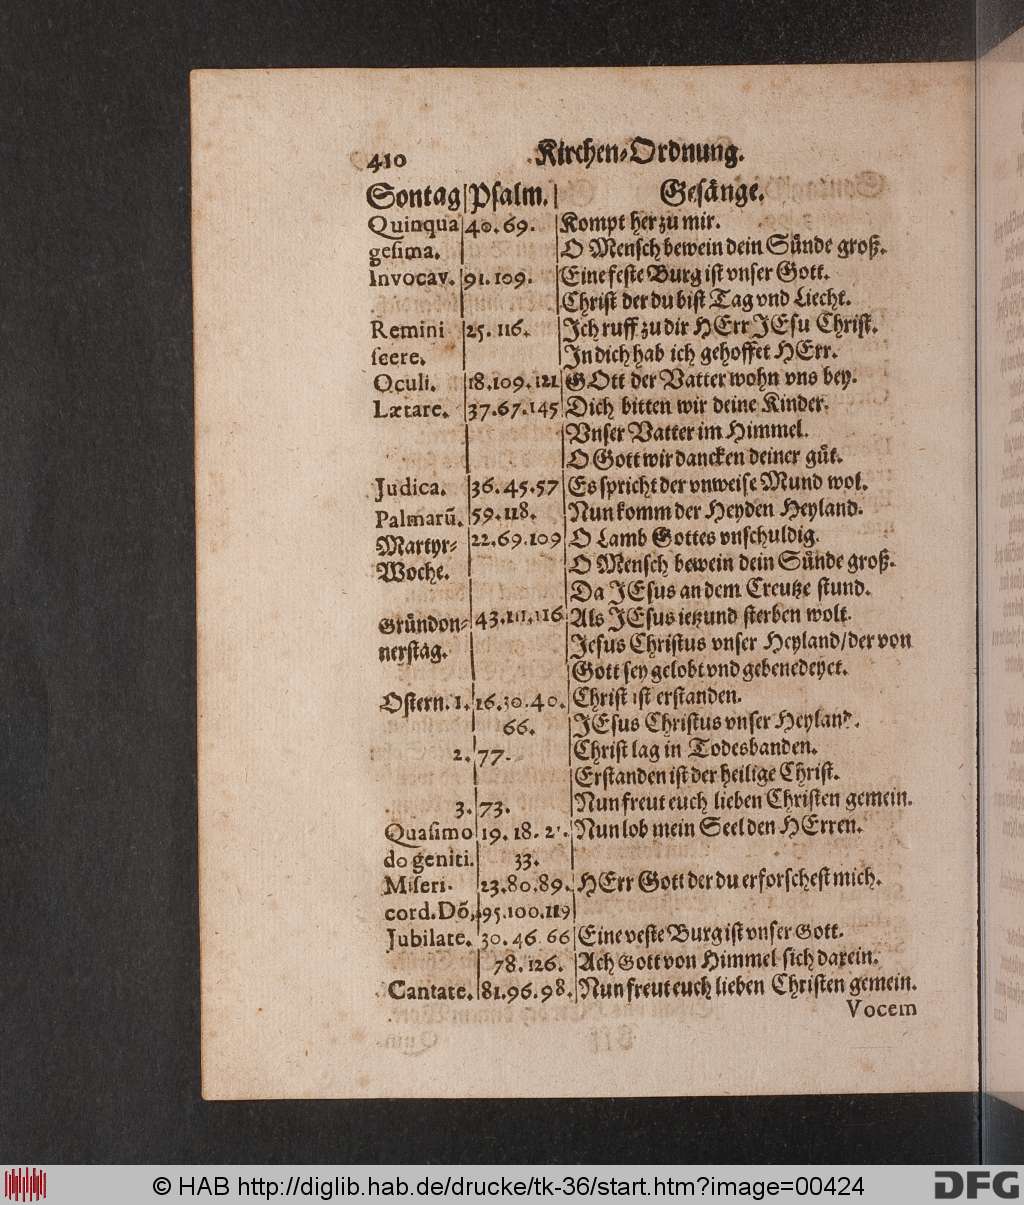 410 Kirchen-Ordnung.
Sontag|Psalm.| Gesänge.
Quinqua 40. 69. Kompt her zu mir.
gesima. O Mensch bewein dein Sünde groß.
Invocav. 91. 109. Eine feste Burg ist vnser Gott.
Christ der du bist Tag vnd Liecht.
Remini 25. 116. Ich ruff zu dir HErr JEsu Christ.
scere. In dich hab ich gehoffet HErr.
Oculi. 18. 109. 121 GOtt der Vatter wohn vns bey.
Lætare. 37. 67. 145 Dich bitten wir deine Kinder.
Vnser Vatter im Himmel.
O Gott wir dancken deiner güt.
Judica. 36. 45. 57 Es spricht der vnweise Mund wol.
Palmarū. 59. 118. Nun komm der Heyden Heyland.
Martyr- 22. 69. 109 O Lamb Gottes vnschuldig.
Woche. O Mensch bewein dein Sünde groß.
Da JEsus an dem Creutze stund.
Gründon- 43. 111. 116 Als JEsus ietzund sterben wolt.
nerstag. Jesus Christus vnser Heyland/der von
Gott sey gelobt vnd gebenedeyet.
Ostern. 1. 16. 30. 40. Christ ist erstanden.
66. JEsus Christus vnser Heyland.
2. 77. Christ lag in Todesbanden.
Erstanden ist der heilige Christ.
3. 73. Nun freut euch lieben Christen gemein.
Quasimo 19. 18. Nun lob mein Seel den HErren.
do geniti. 33.
Miseri- 23. 80. 89. HErr Gott der du erforschest mich.
cord. Dō, 95. 100. 119
Jubilate. 30. 46. 66 Eine veste Burg ist vnser Gott.
78. 126. Ach Gott von Himmel sich darein.
Cantate. 81. 96. 98. Nun freut euch lieben Christen gemein.
Vocem
© HAB http://diglib.hab.de/drucke/tk-36/start.htm?image=00424
DFG